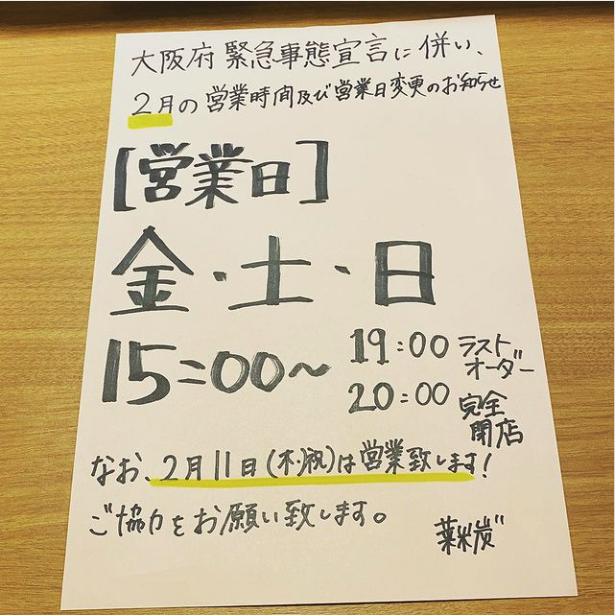 大阪府 緊急事態宣言に併い、
2月の営業時間及び営業日変更のお知らせ
[営業日]
金・土・日
15:00〜
19:00 ラストオーダー
20:00 完全閉店
なお、2月11日(木・祝)は営業致します!
ご協力をお願い致します。